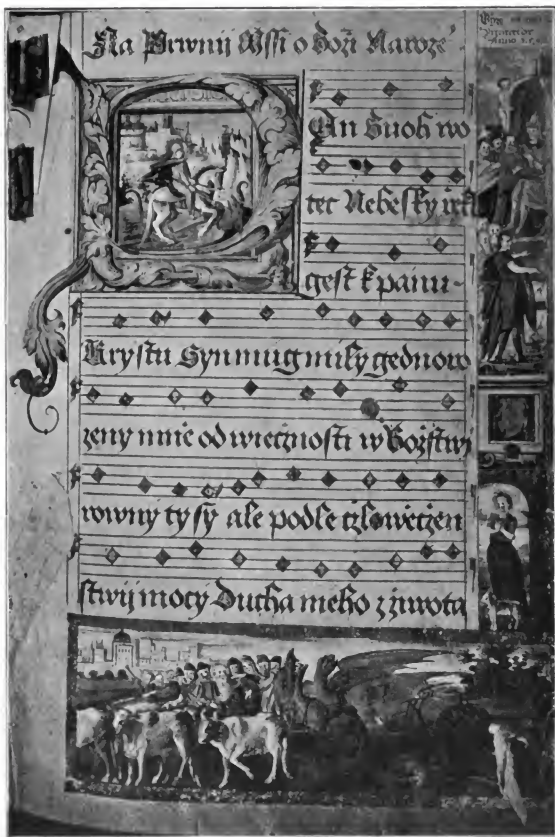 Na Prwnij Mssi o Boži Naroze
An Buoh wo
tec Nebesky
gest k panu-
Krystu Syn mug mily gednoro
zeny mne od wiecznosti w Božstwi
rowny ty sy ale podle czlowieczen
stwij mocy Ducha meho z žiwota